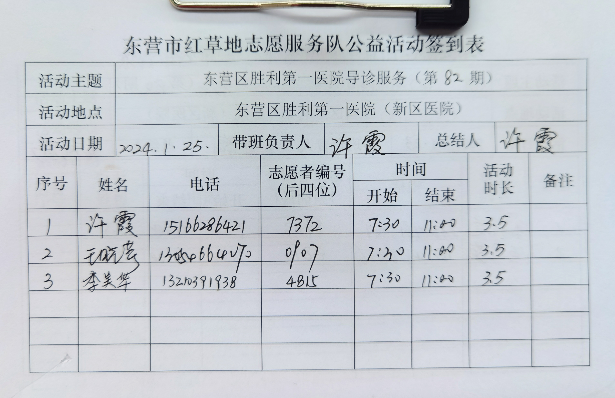 东营市红草地志愿服务队公益活动签到表
活动主题 东营区胜利第一医院导诊服务（第 82 期）
活动地点 东营区胜利第一医院（新区医院）
活动日期 2024.1.25. 带班负责人 许霞 总结人 许霞
序号 姓名 电话 志愿者编号（后四位） 时间 开始 结束 活动时长 备注
1 许霞 15166286421 7372 7:30 11:00 3.5
2 0907 7:30 11:00 3.5
3 李美华 13210391938 4815 7:30 11:00 3.5